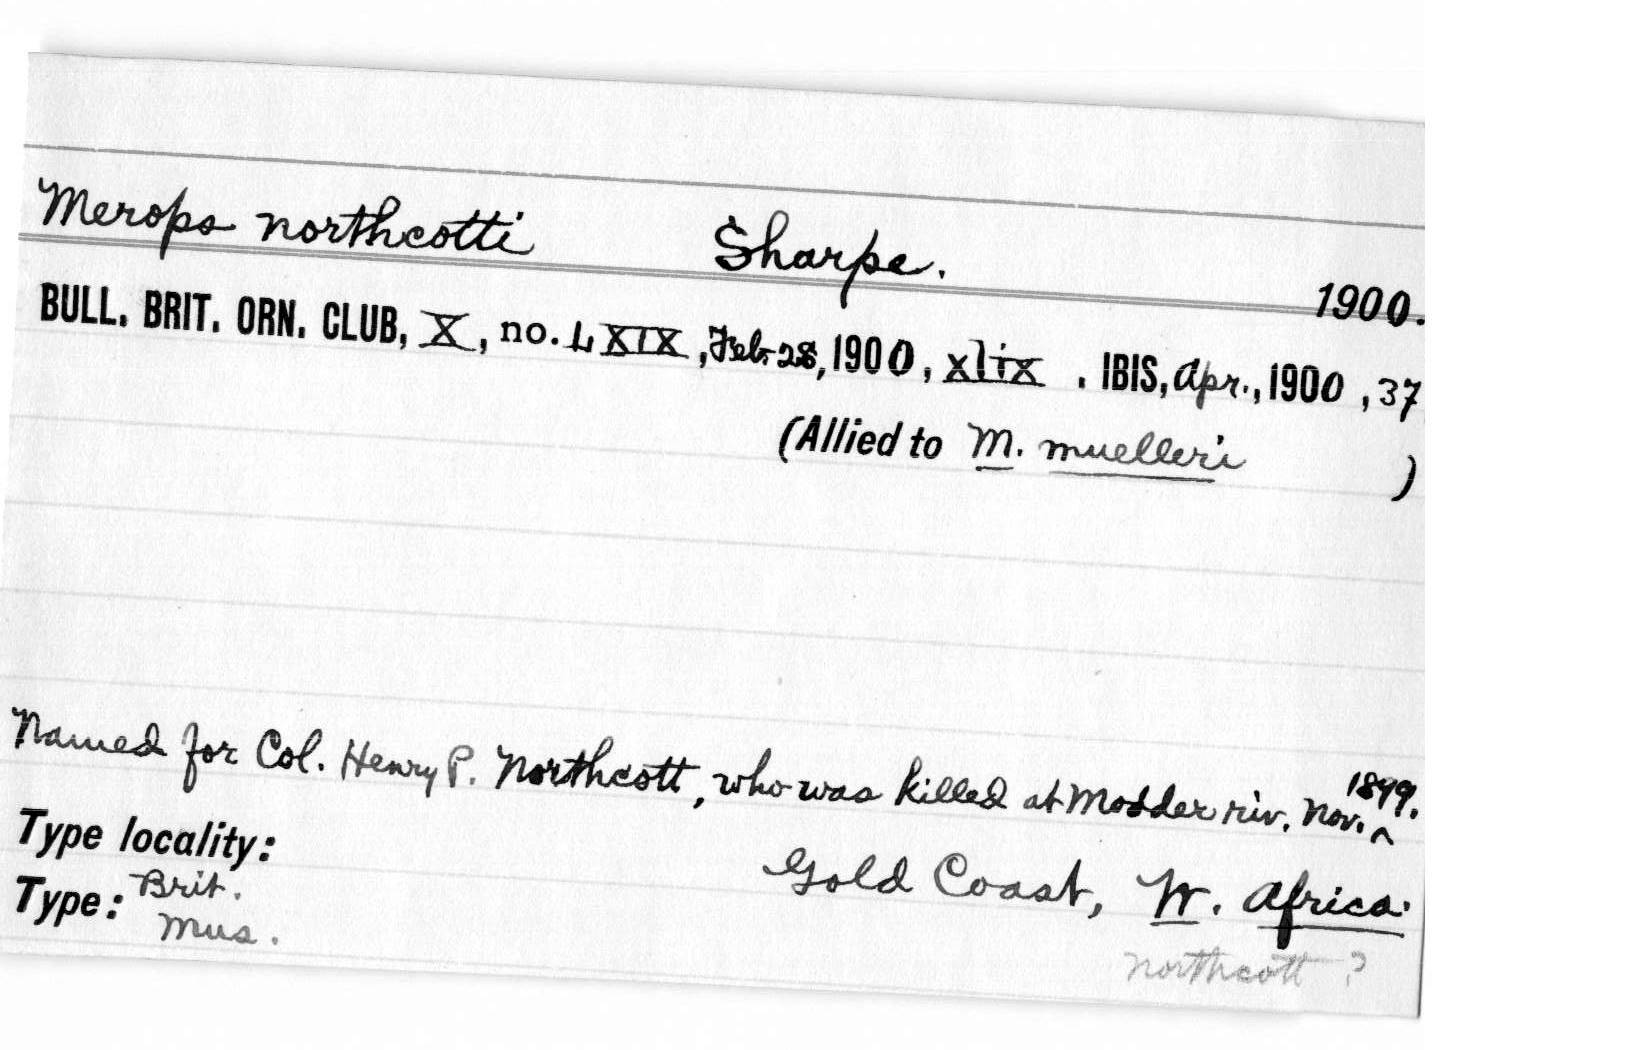 Merops northcotti Sharpe. 1900.
BULL. BRIT. ORN. CLUB, X, no. LXIX, Feb. 28, 1900, xlix . IBIS, Apr., 1900, 37
(Allied to M. muelleri )
Named for Col. Henry P. Northcott, who was killed at Modder riv. Nov. ^ 1899.
Type locality: Gold Coast, W. Africa.
Type: Brit. Mus.
Northcott ?